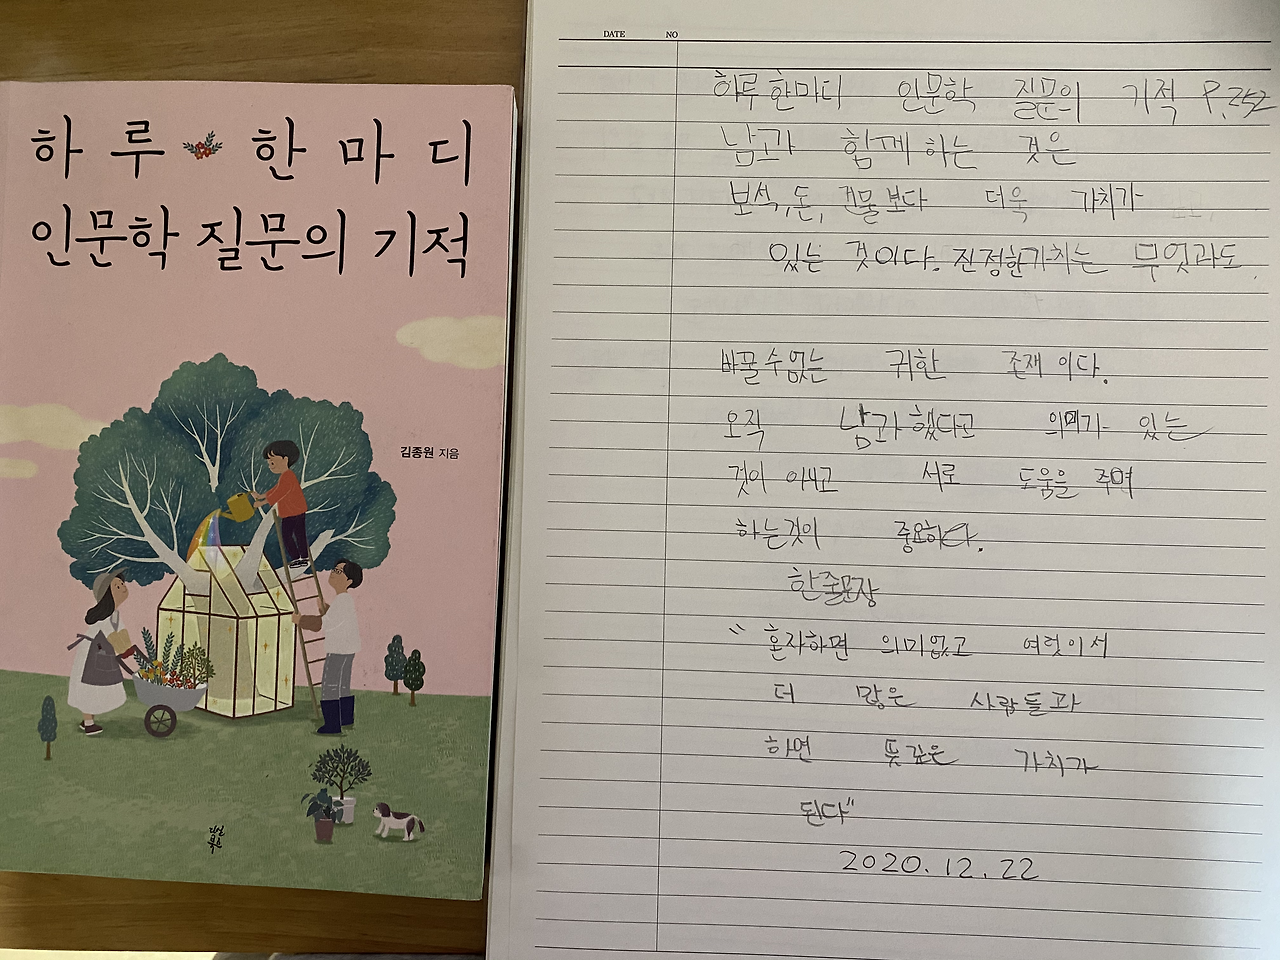 하루 한마디
인문학 질문의 기적
김종원 지음
DATE NO
하루 한마디 인문학 질문의 기적 P.252
남과 함께 하는 것은
보석, 돈, 건물 보다 더욱 가치가
있는 것이다. 진정한가치는 무엇과도
바꿀수없는 귀한 존재 이다.
오직 남과 했다고 의미가 있는
것이 아니고 서로 도움을 주며
하는것이 중요하다.
한줄문장
"혼자하면 의미없고 여럿이서
더 많은 사람들과
하면 뜻깊은 가치가
된다"
2020.12.22